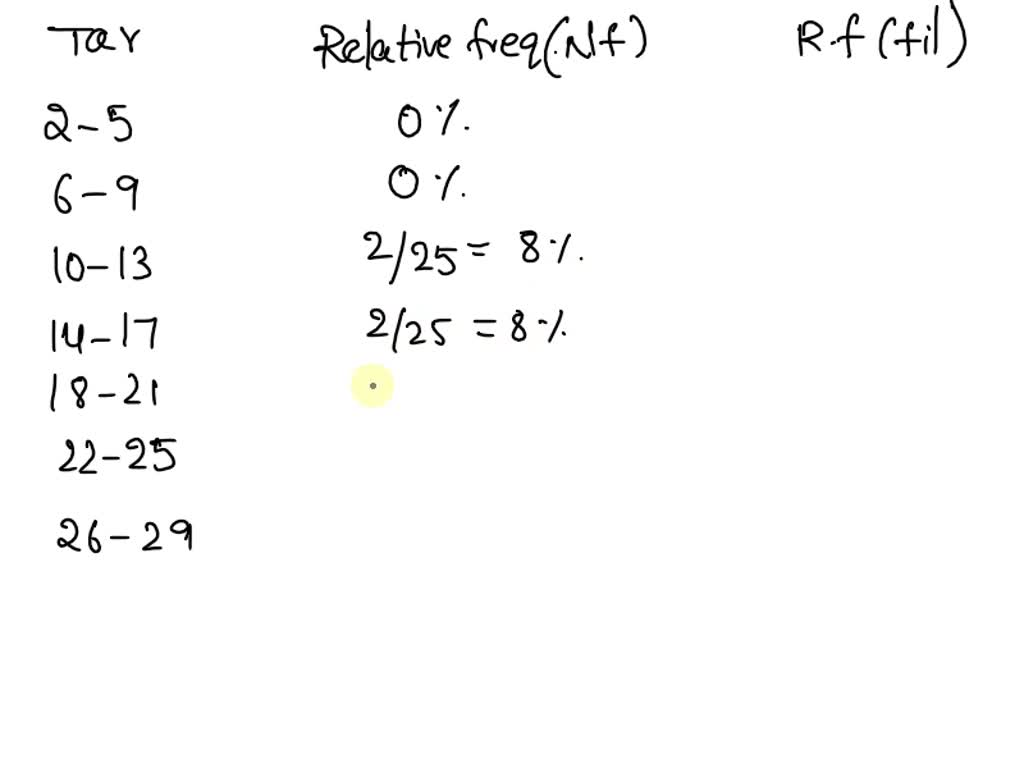 Tar Relative freq(Nf) R.f (fil)
2-5 0%.
6-9 0%.
10-13 2/25 = 8%.
14-17 2/25 = 8%.
18-21
22-25
26-29